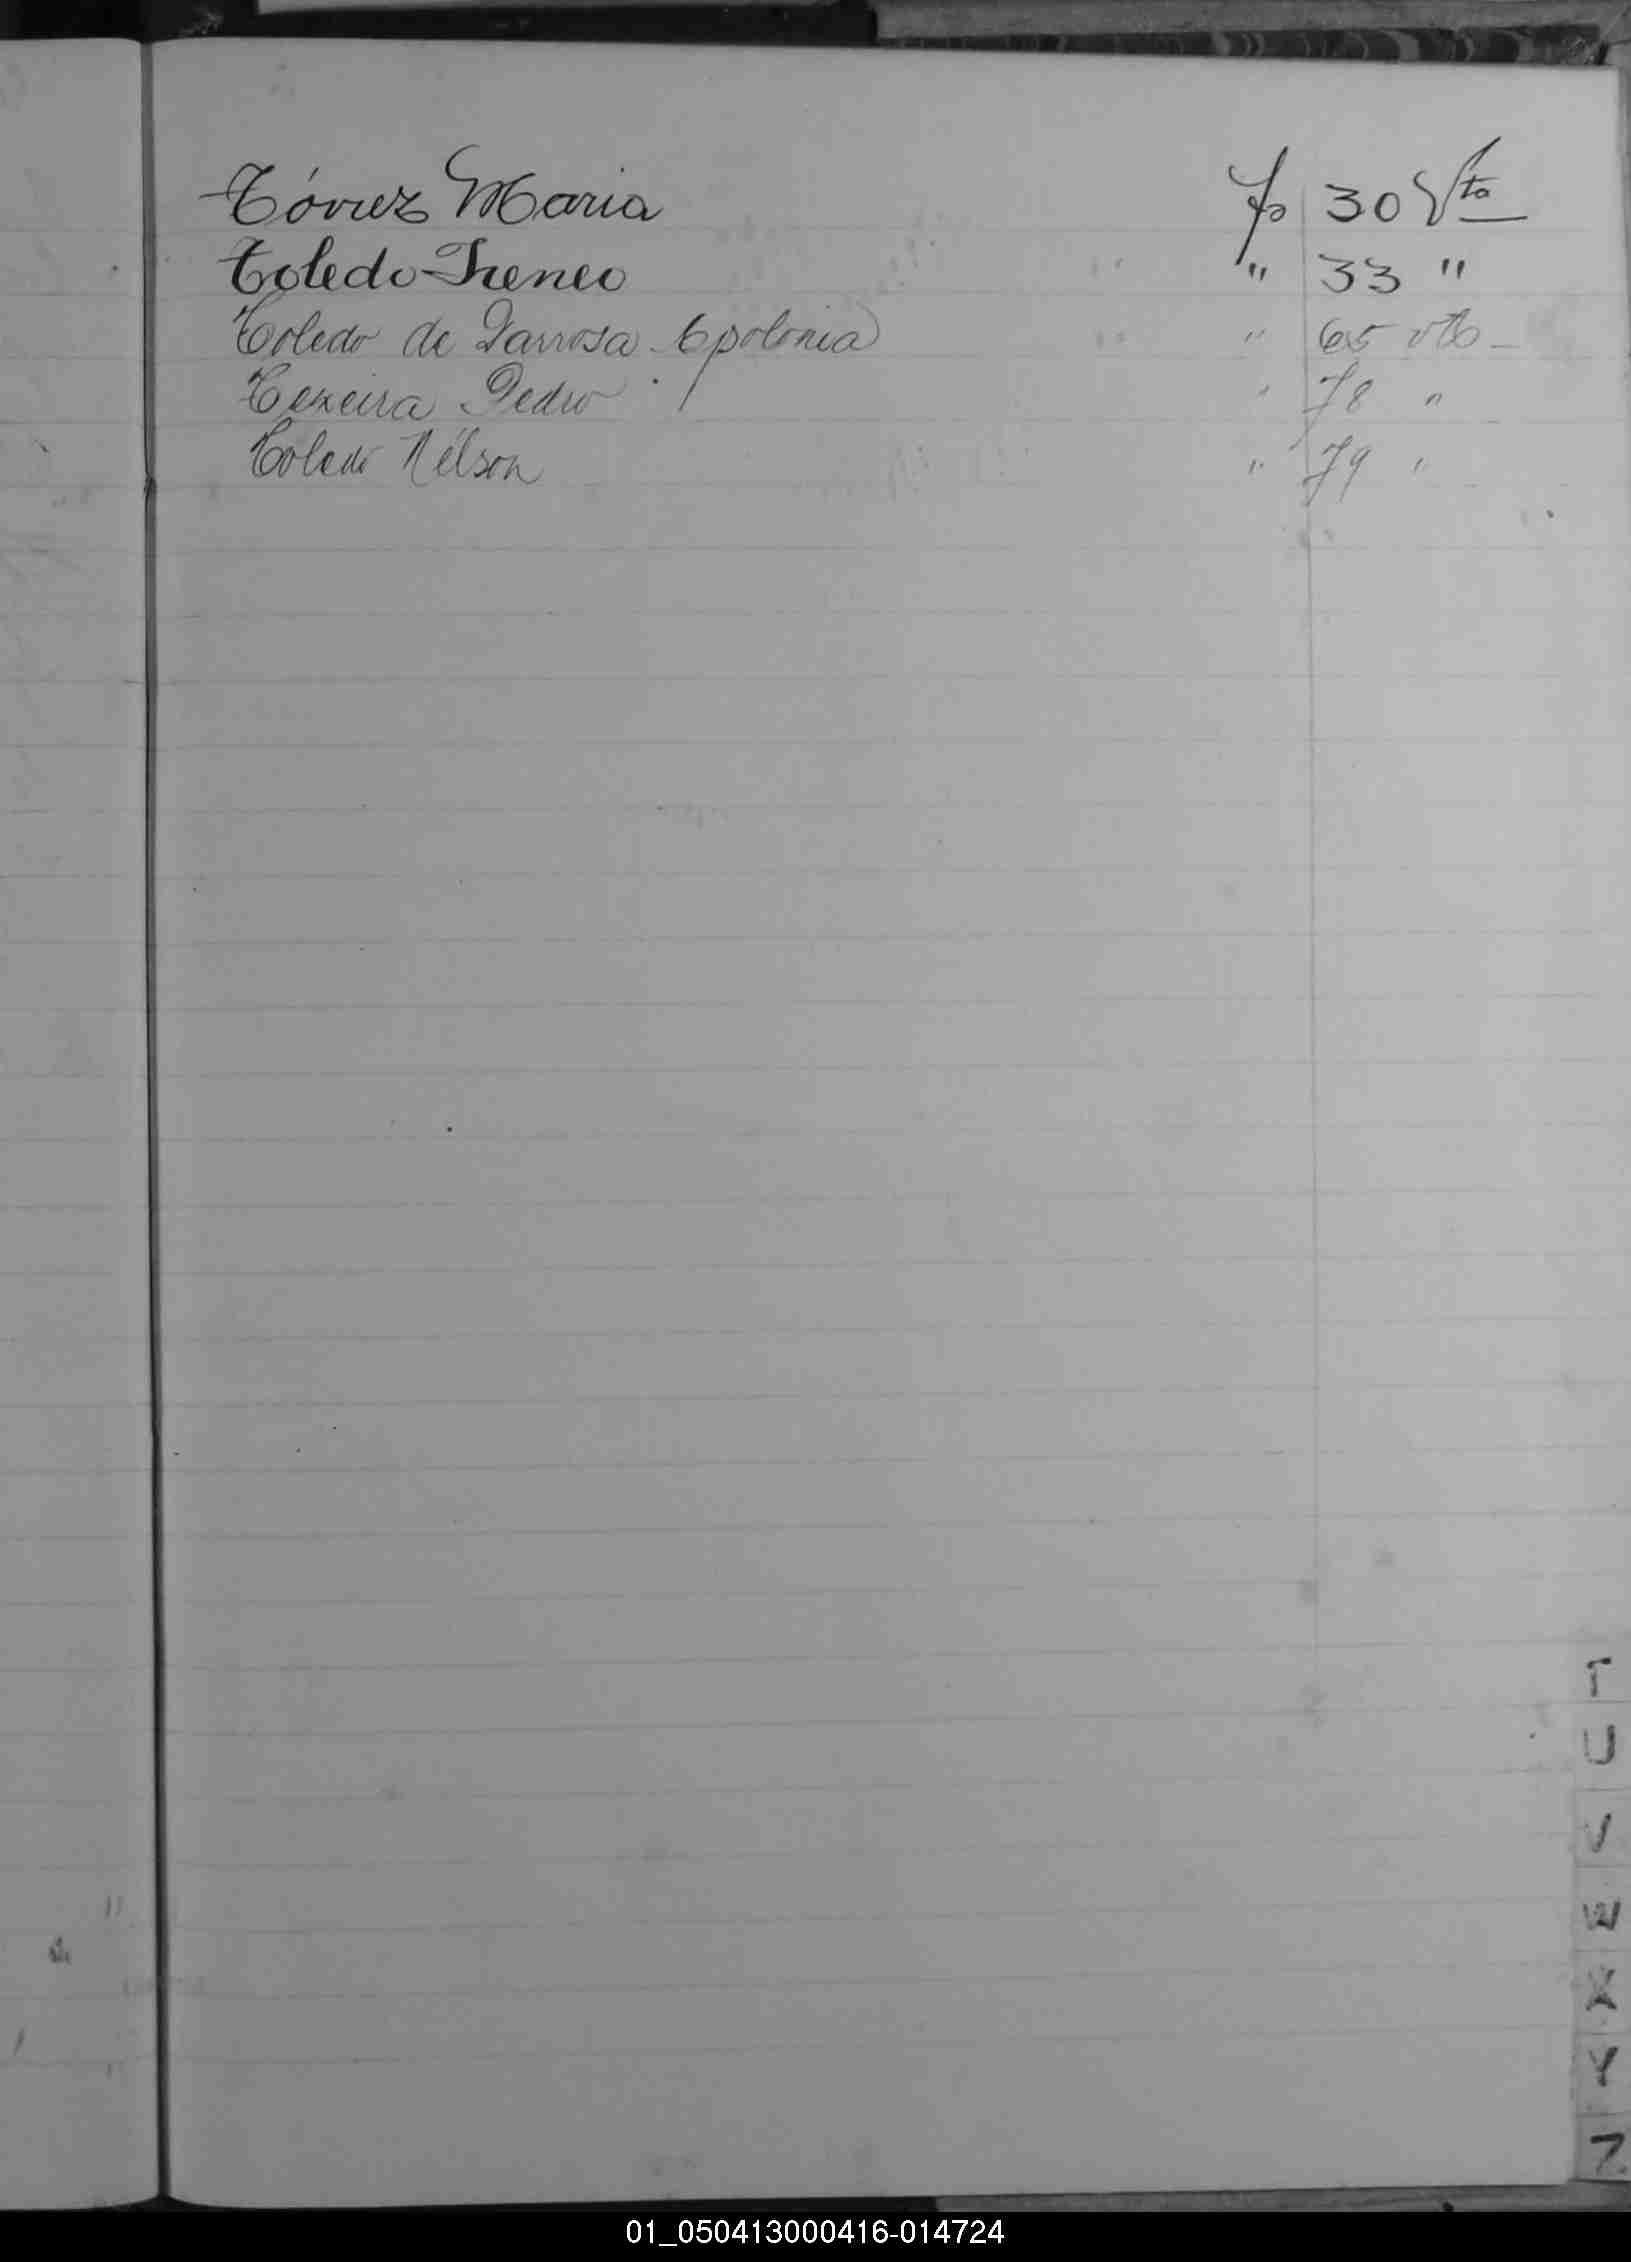 Tórrez Maria fo 30 Vta
Toledo Ireneo " 33 "
Toledo de Larrosa Apolonia " 65 vto
Texeira Pedro " 78 "
Toledo Nélson " 79 "
T
U
V
W
X
Y
Z
01_050413000416-014724